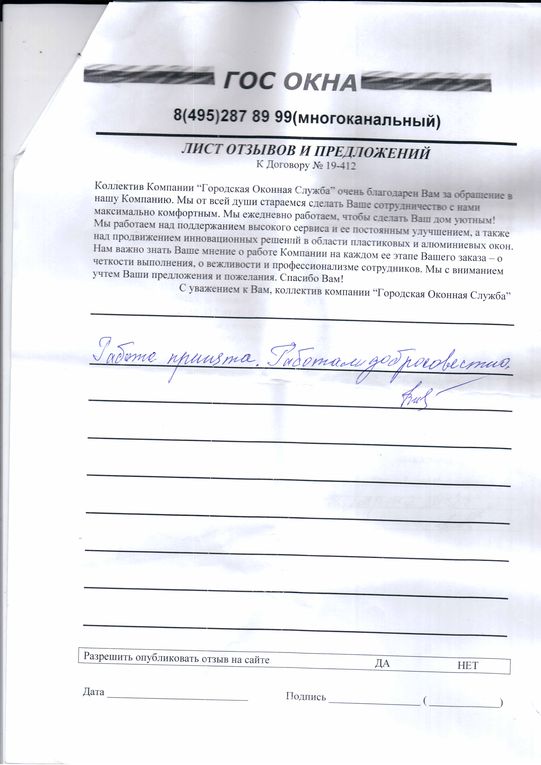 ГОС ОКНА
8(495)287 89 99(многоканальный)
ЛИСТ ОТЗЫВОВ И ПРЕДЛОЖЕНИЙ
К Договору № 19-412
Коллектив Компании “Городская Оконная Служба” очень благодарен Вам за обращение в
нашу Компанию. Мы от всей души стараемся сделать Ваше сотрудничество с нами
максимально комфортным. Мы ежедневно работаем, чтобы сделать Ваш дом уютным!
Мы работаем над поддержанием высокого сервиса и ее постоянным улучшением, а также
над продвижением инновационных решений в области пластиковых и алюминиевых окон.
Нам важно знать Ваше мнение о работе Компании на каждом ее этапе Вашего заказа – о
четкости выполнения, о вежливости и профессионализме сотрудников. Мы с вниманием
учтем Ваши предложения и пожелания. Спасибо Вам!
С уважением к Вам, коллектив компании “Городская Оконная Служба”
Работа принята. Работали добросовестно.
Разрешить опубликовать отзыв на сайте ДА НЕТ
Дата Подпись ( )